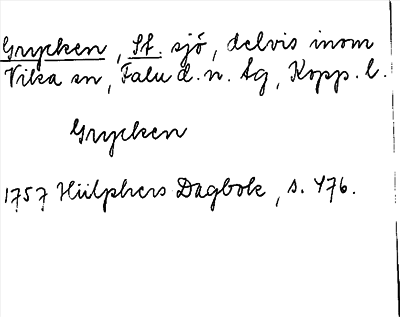 Grycken, St. sjö, delvis inom
Vika sn, Falu d. n. tg, Kopp. l.
Grycken
1757 Hülphers Dagbok, s. 476.